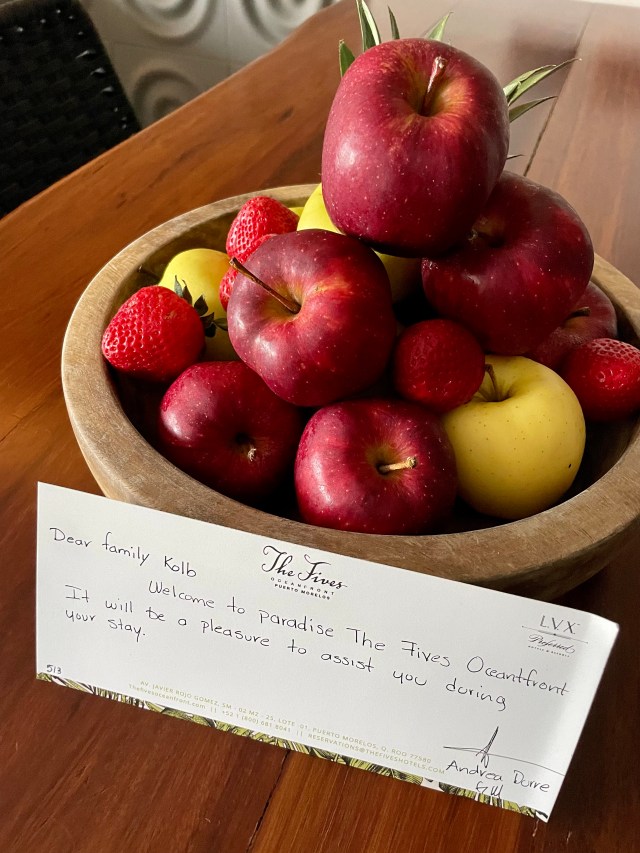 The Fives
OCEANFRONT
PUERTO MORELOS
L.V.X.
Preferred
HOTELS & RESORTS
Dear family Kolb
Welcome to paradise The Fives Oceantfront
It will be a pleasure to assist you during
your stay.
513
AV. JAVIER ROJO GOMEZ, SM - 02 MZ - 25, LOTE - 01, PUERTO MORELOS, Q. ROO 77580
Thefivesoceanfront.com || +52 1 (800) 681.8041 || RESERVATIONS@THEFIVESHOTELS.COM
Andrea Dorre